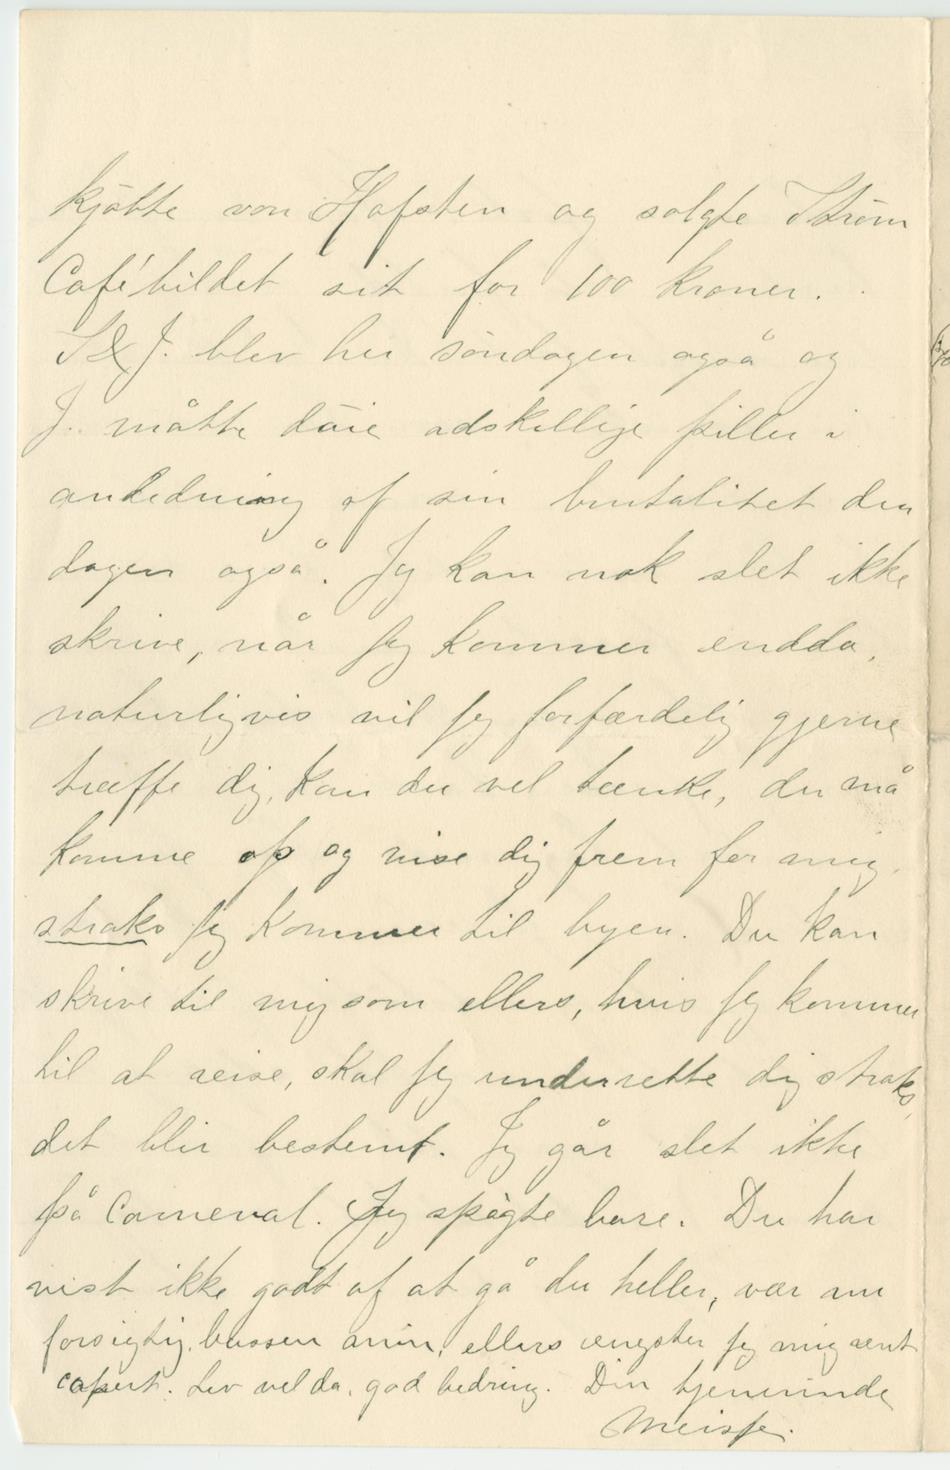 kjøbte von Hofsten og solgte Strøm
Cafébildet sit for 100 kroner.
S & J. blev her søndagen også og
J. måtte døie adskellige piller i
anledning af sin brutalitet den
dagen også. Jeg kan nok slet ikke
skrive, når jeg kommer endda,
naturligvis vil jeg forfærdelig gjerne
træffe dig, kan du vel tænke, du må
komme op og vise dig frem for mig
straks jeg kommer til byen. Du kan
skrive til mig som ellers, hvis jeg kommer
til at reise, skal jeg underrette dig straks,
det blir bestemt. Jeg går slet ikke
på Carneval. Jeg spøgte bare. Du har
vist ikke godt af at gå du heller, vær nu
forsigtig, bassen min, ellers ængster jeg mig rent
caput. Lev vel da, god bedring. Din hjerninde